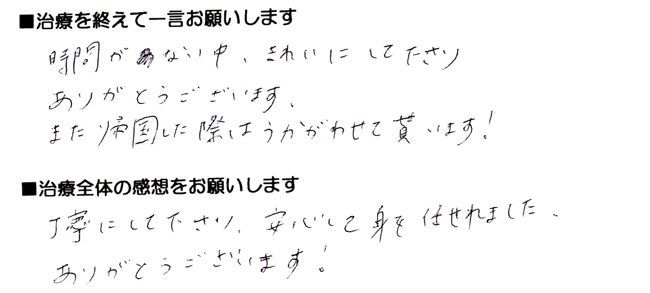 ■治療を終えて一言お願いします
時間がない中、きれいにして下さり
ありがとうございます、
また帰国した際はうかがわせて貰います!
■治療全体の感想をお願いします
丁寧にして下さり、安心して身を任せれました、
ありがとうございます!